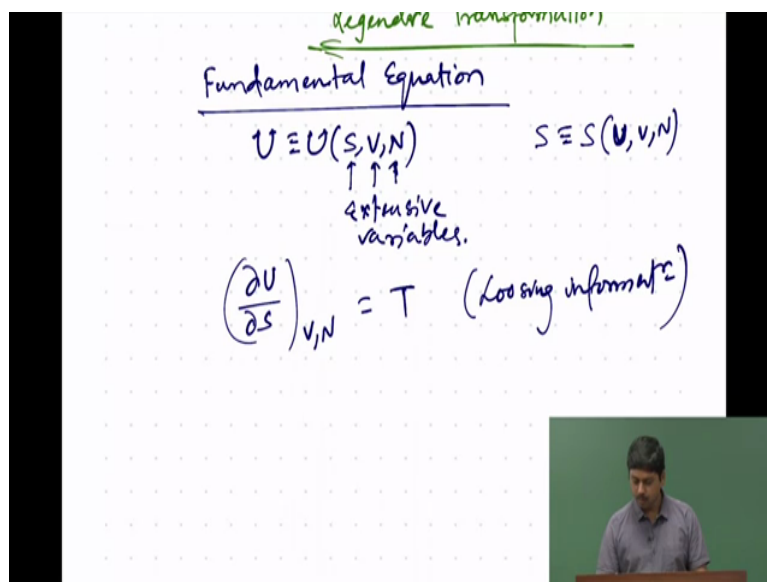 Legendre Transformation
Fundamental Equation
U ≡ U(S, V, N)
S ≡ S(U, V, N)
↑ ↑ ↑
extensive
variables.
(∂U/∂S)V,N = T (Loosing informatn)